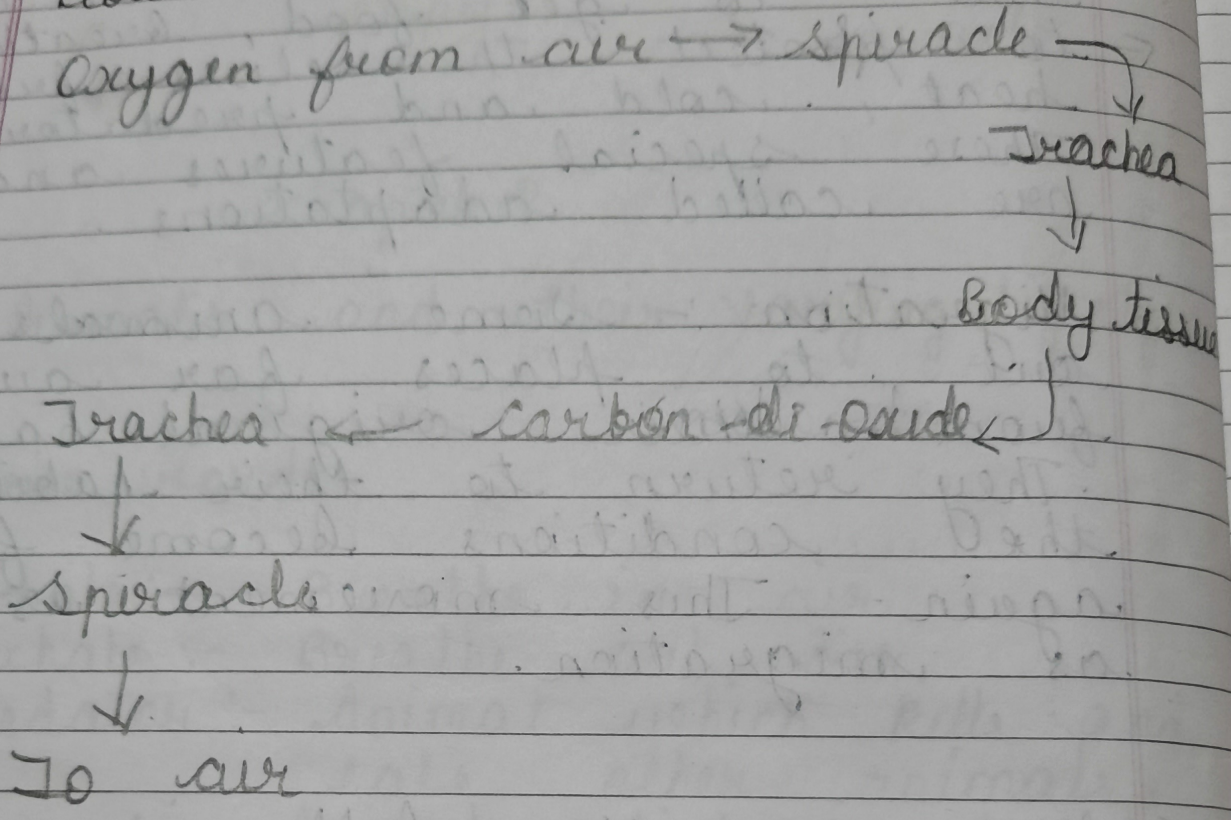 Oxygen from air → spiracle
Trachea
↓
Body tissue
Trachea ← carbon-di-oxide
↓
spiracle
↓
To air